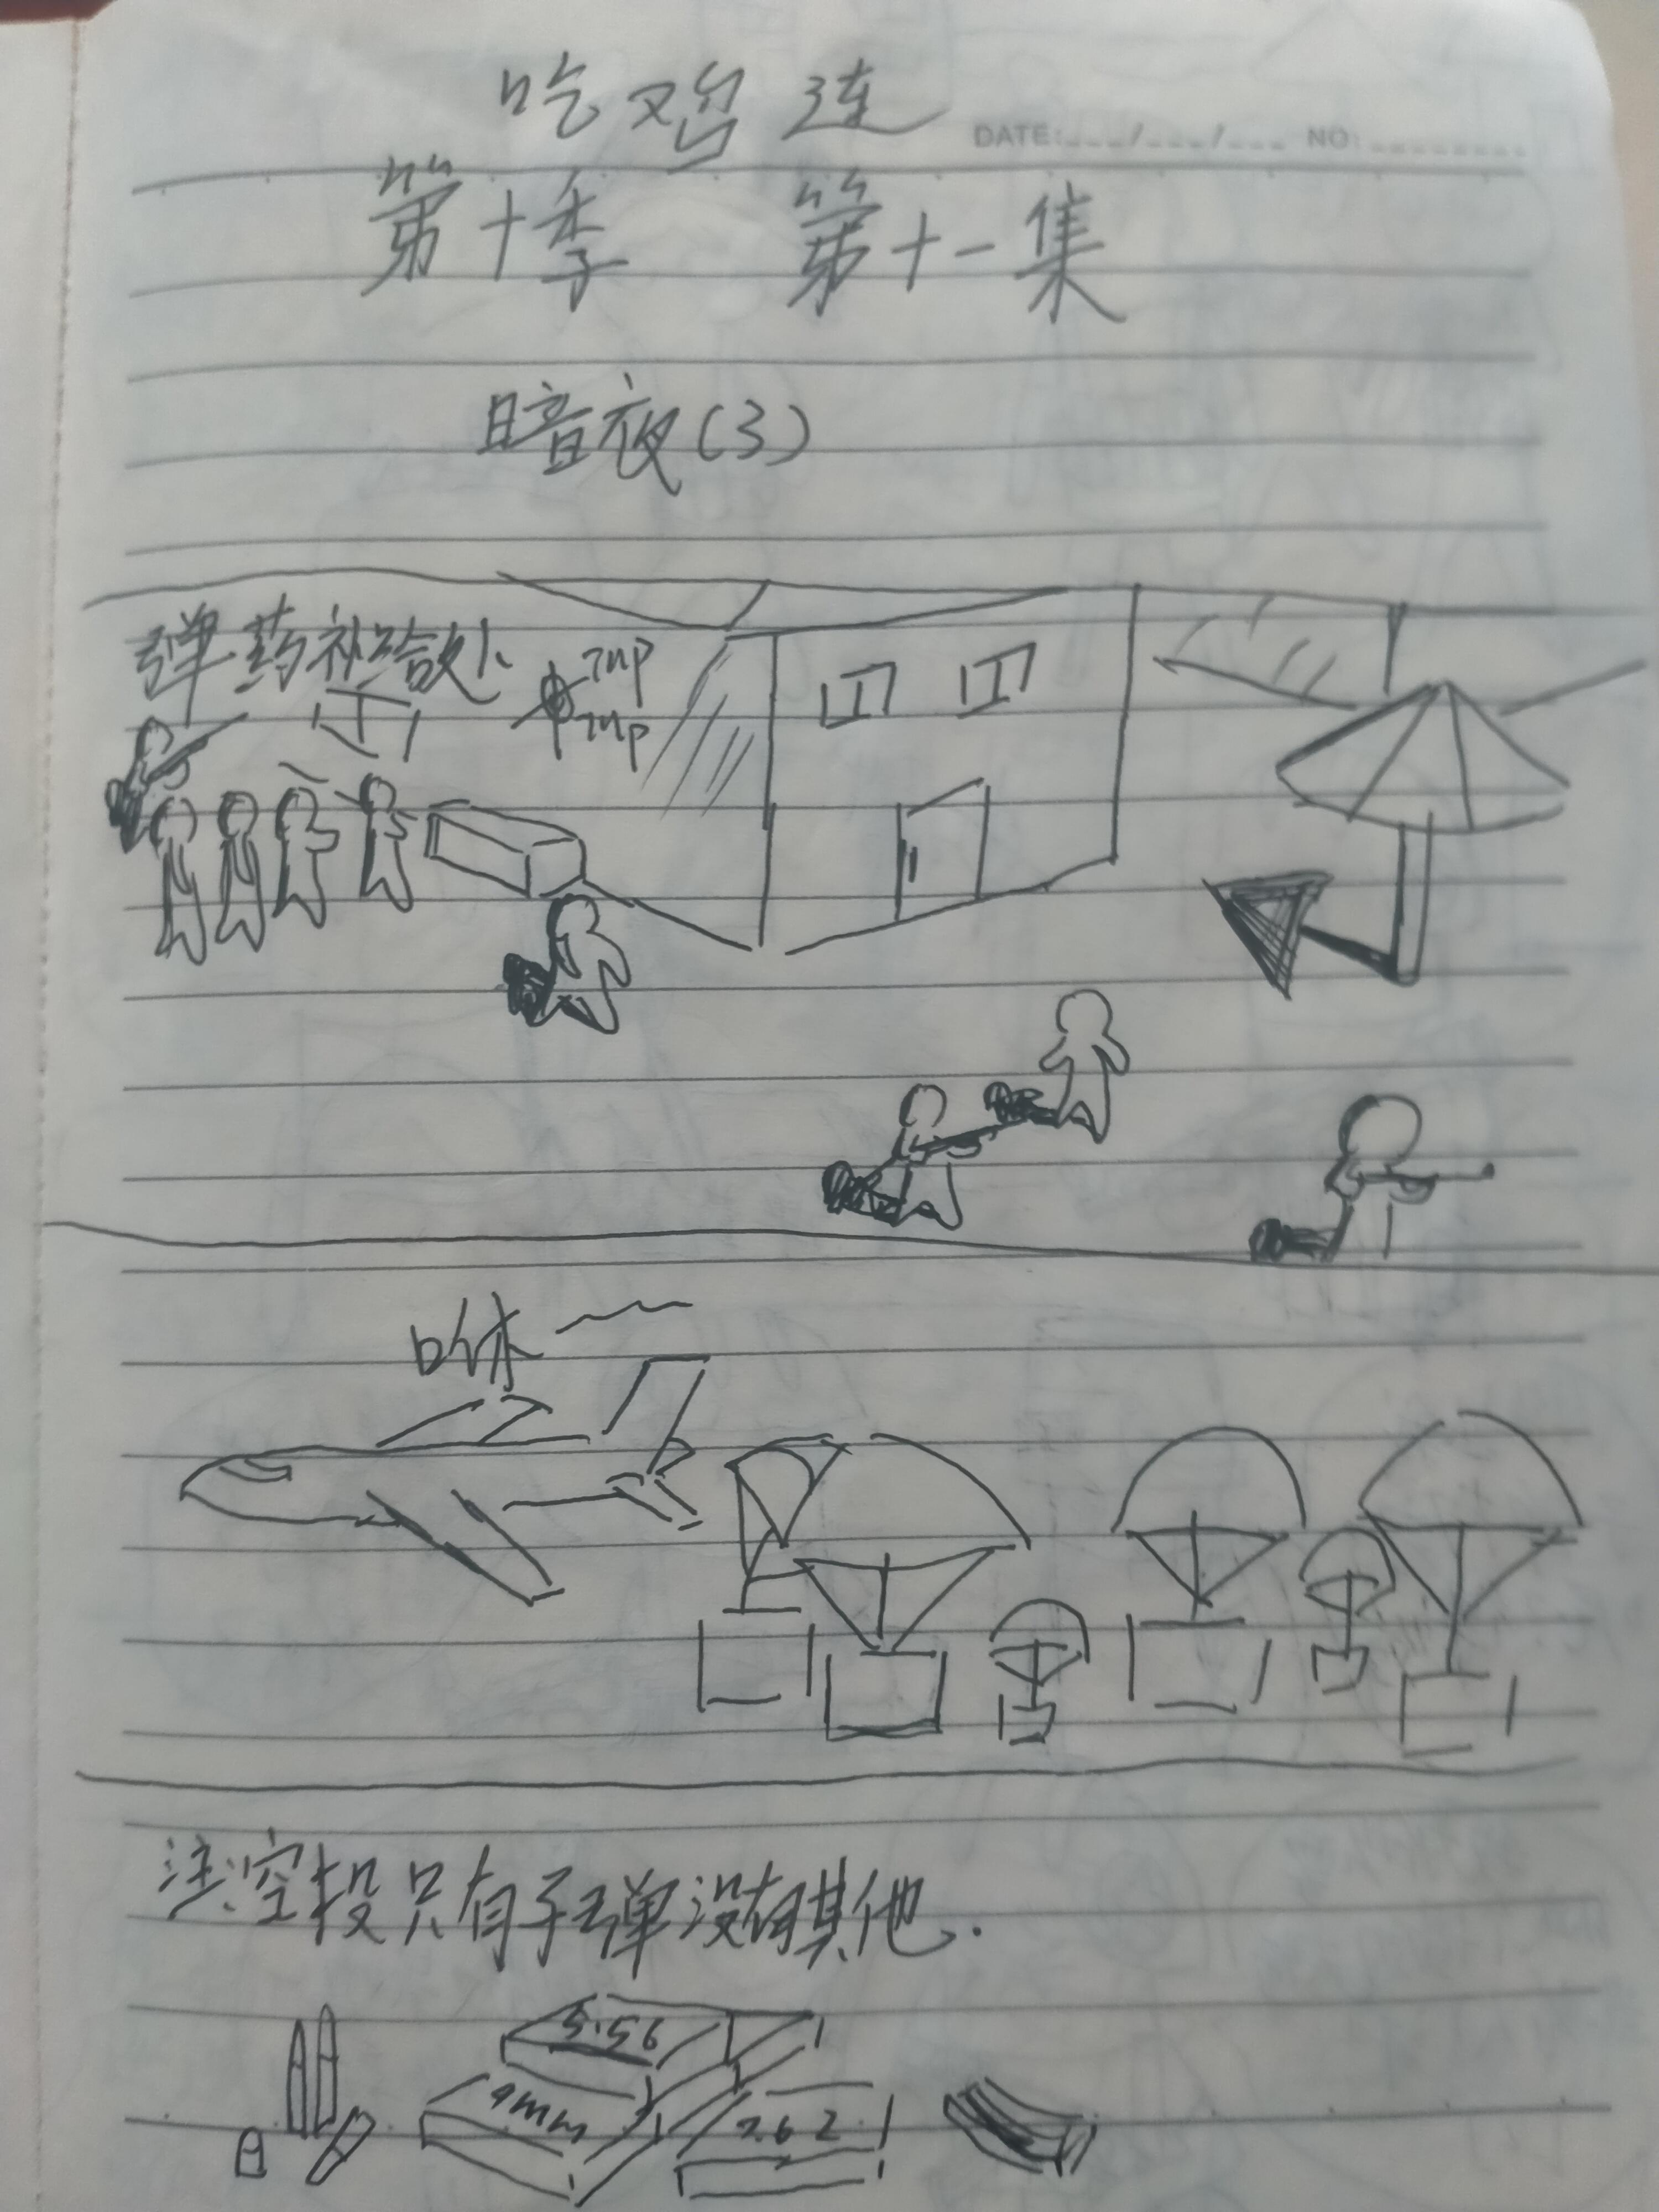 吃鸡连
DATE:___/___/___ NO:________
第十季 第十一集
暗夜(3)
弹药补给处
咻
注:空投只有子弹没有其他.
5.56
9mm
7.62